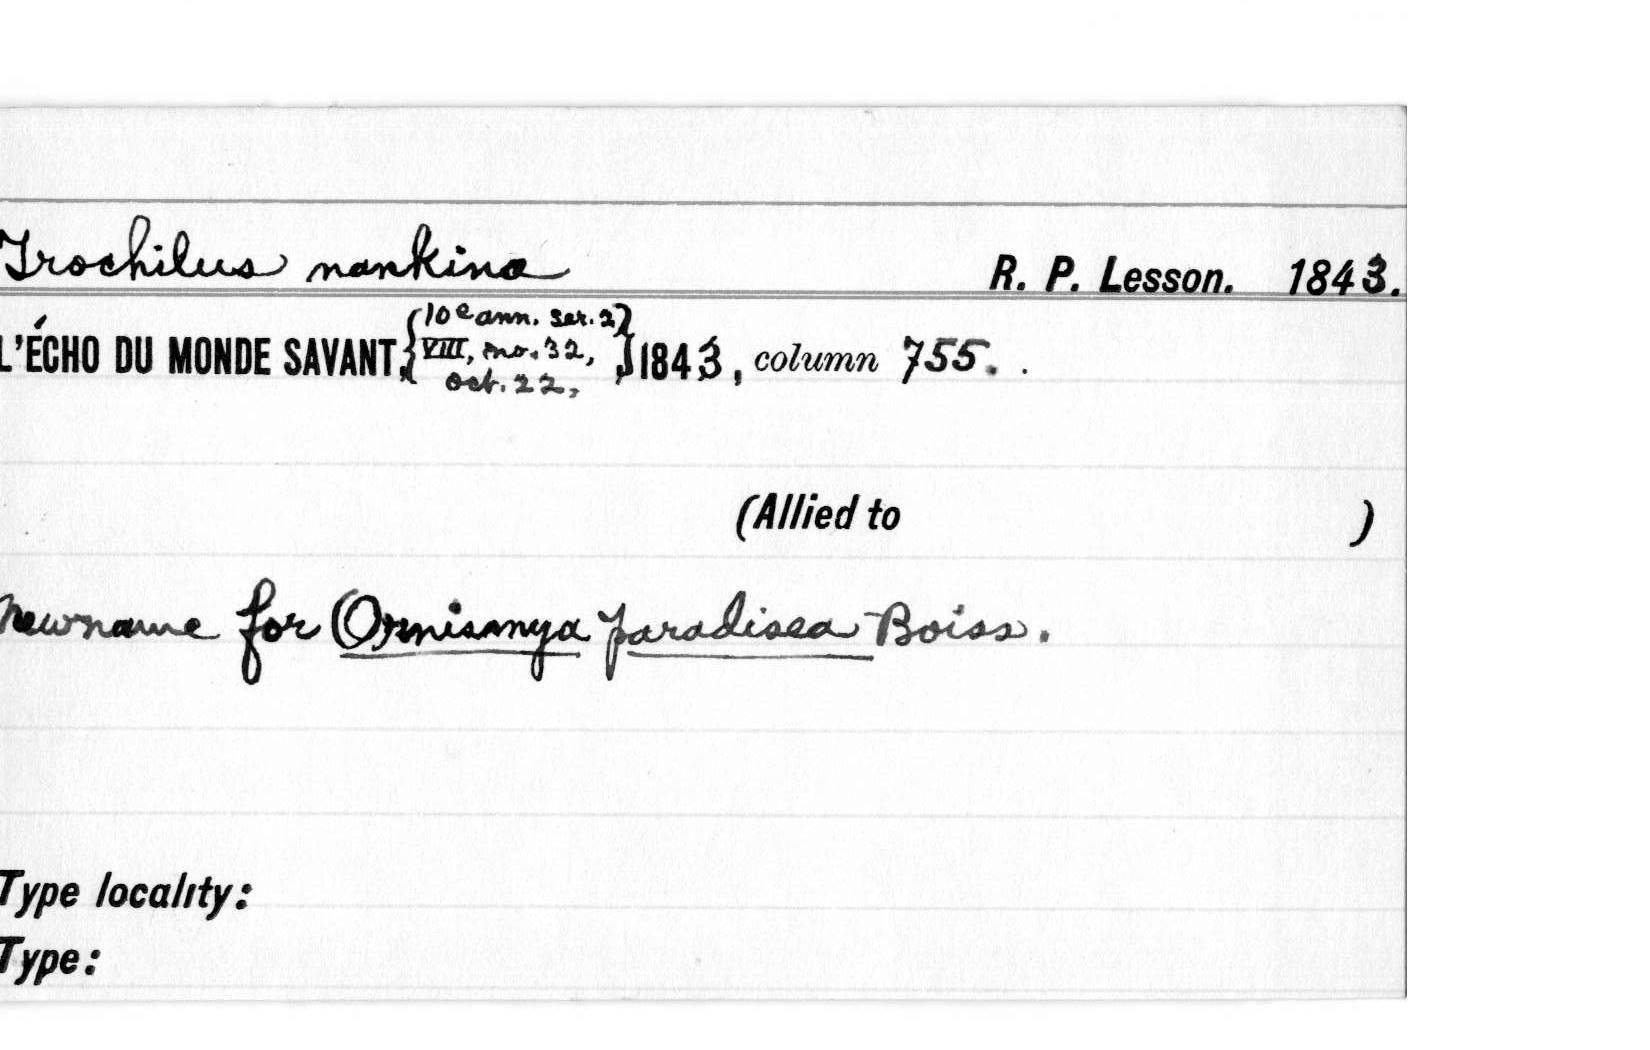 Trochilus nankina R. P. Lesson. 1843.
L'ÉCHO DU MONDE SAVANT, {10e ann. ser. 2
VIII, no. 32,
Oct. 22,} 1843, column 755. .
(Allied to )
New name for Ornismya paradisea Boiss.
Type locality:
Type: